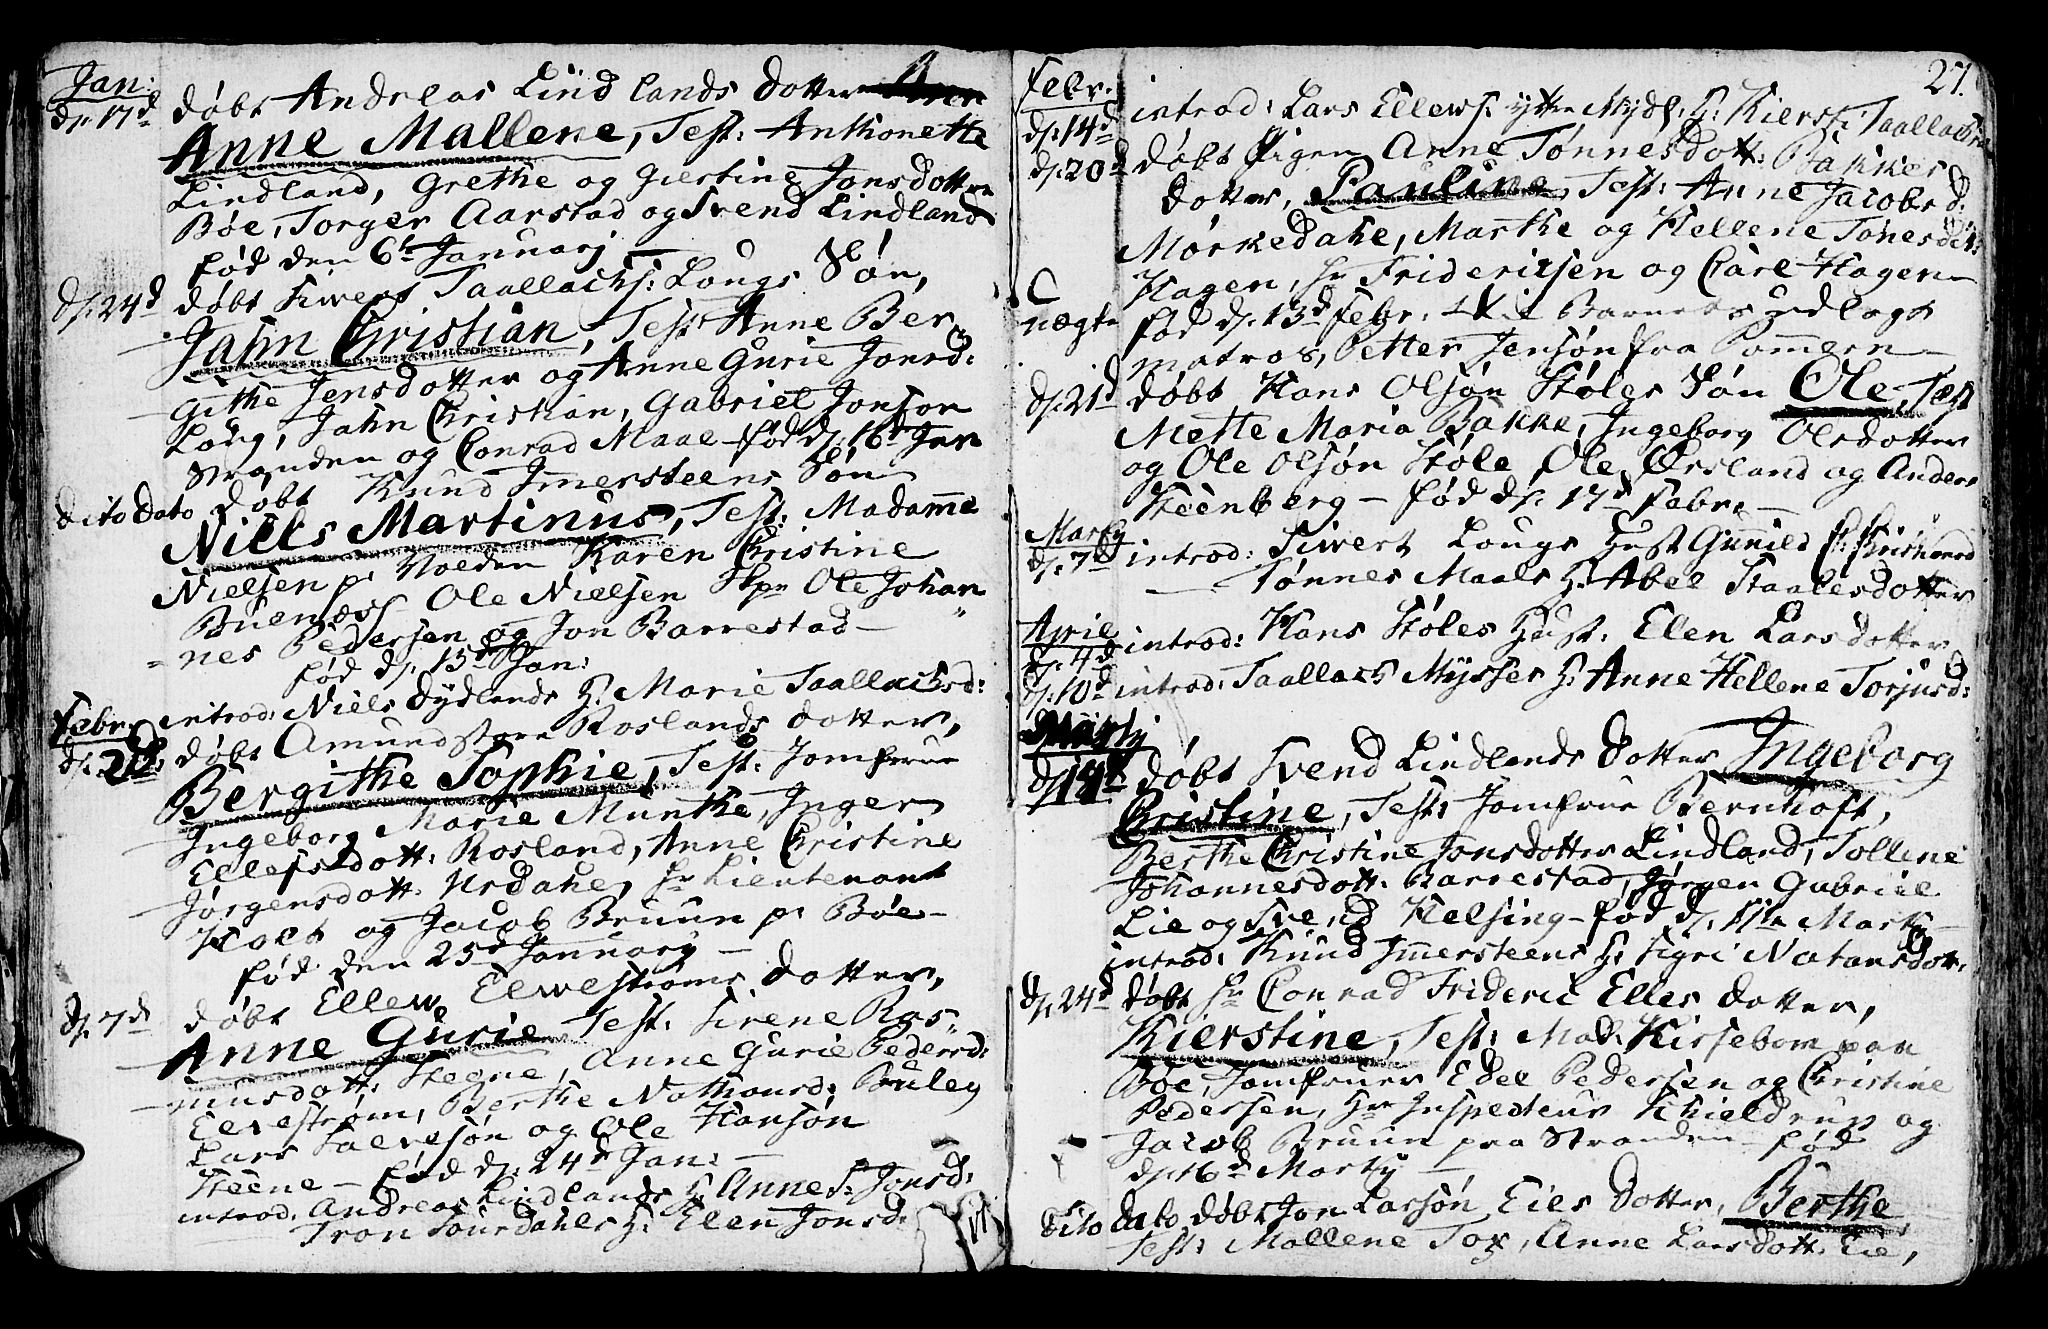 Jan:
d: 17d døbt Andreas Lindlands Dotter
Anne Mallene, Test: Anthonette
Lindland, Grethe og Giertine Jonsdotter
Bøe, Torger Aarstad og Svend Lindland
fød den 6te Januarj
d: 24d døbt Siwert Taallachs: Longs Søn,
Jahn Christian, Test: Anne Ber
githe Jensdotter og Anne Gurie Jonsd:
Long, Jahn Christian, Gabriel Jonson
Stranden og Conrad Maal – fød d: 16d Jan
dito dato døbt Knud Imersteens Søn
Niels Martinus, Test: Madame
Nielsen p: Volden Karen Christine
Buenæss Ole Nielsen Skpr Ole Johan
= nes Pedersen og Jon Barrestad –
fød d: 15d Jan:
introd: Niels Dydlands H: Marie Taallachsd:
Febr:
d: 2d døbt Amund store Roslands Dotter,
Bergithe Sophie, Test: Jomfrue
Ingeborg Marie Munthe, Inger
Ellefsdott: Rosland, Anne Christine
Jørgensdott: Urdahl, Hr Lieutenant
Holt og Jacob Bruun p: Bøe –
fød den 25d January –
d: 7d døbt Ellew Elwestrøms Dotter,
Anne Gurie Test: Sirene Ras
musdott: Hegne, Anne Gurie Pedersd:
Elvestrøm, Berthe Nathansd: Brueleg
Lars Salvesøn og Ole Hansøn
Steene – fød d: 24d Jan: –
introd: Andreas Lindlands H: Anne S: Jonsd:
Tron Sourdahls H: Elen Jonsd:
27.
Febr:
d: 14d introd: Lars Ellews: ytter H: Kierst: Taallachsd
d: 20d døbt Pigen Anne Tønnesdott: Bakkes
Dotter, Pauline, Test: Anne Jacobsd.
Mørkedahl, Marthe og Hellene Tønesdott:
Hagen, Hr Friderichsen og Carl Hagen –
nægte fød d: 13d Febr: Barnets udlagt
matros, Petter Jensøn fra Pomern –
d: 21d døbt Hans Olsøn Støles Søn Ole, Test
Mette Maria Bakke, Ingeborg Olsdotter
og Ole Olsøn Støle, OleØrsland og Anders
Steenberg – fød d: 17d Febr: –
Martj
d: 7d introd: Siwert Longs Hust Gunild
Tønnes Maals H: Abel Staalesdotter
April
d: 4d introd: Hans Støles Hust: Elen Larsdotter
d: 10d introd: Taallach Mysser H: Anne Hellene Torjusd:
Martj
d: 14d døbt Svend Lindlands Dotter Ingeborg
Christine, Test: Jomfrue Bernhoft,
Berthe Christine Jonsdotter Lindland, Tollene
Johannesdott: Barrestad, Jørgen Gabriel
Lie og Svend Helsing – fød d: 11te Martj –
introd: Knud Imersteens H: Sigri Natansdott:
d: 24d døbt Hr Conrad Frideric Elles Dotter,
Kierstine, Test: Mad: Kirsebom paa
Bøe, Jomfruer Edel Pedersen og Christine
Pedersen, Hr Inspecteur Schieldrup og
Jacob Bruun paa Stranden – fød
d: 16d Martj –
dito dato døbt Jon Larsøn Eies Dotter, Berthe
Test: Mallene Tox, Anne Larsdott: Eie,